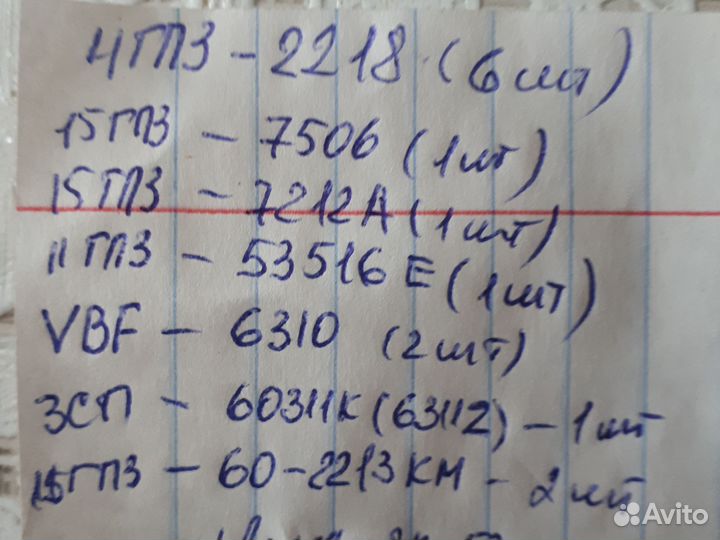 4ГПЗ - 2218 (6 шт)
15ГПЗ - 7506 (1 шт)
15ГПЗ - 7212А (1 шт)
11ГПЗ - 53516Е (1 шт)
VBF - 6310 (2 шт)
ЗСП - 60311К (6311Z) - 1 шт
15ГПЗ - 60-2213КМ - 2 шт
Avito